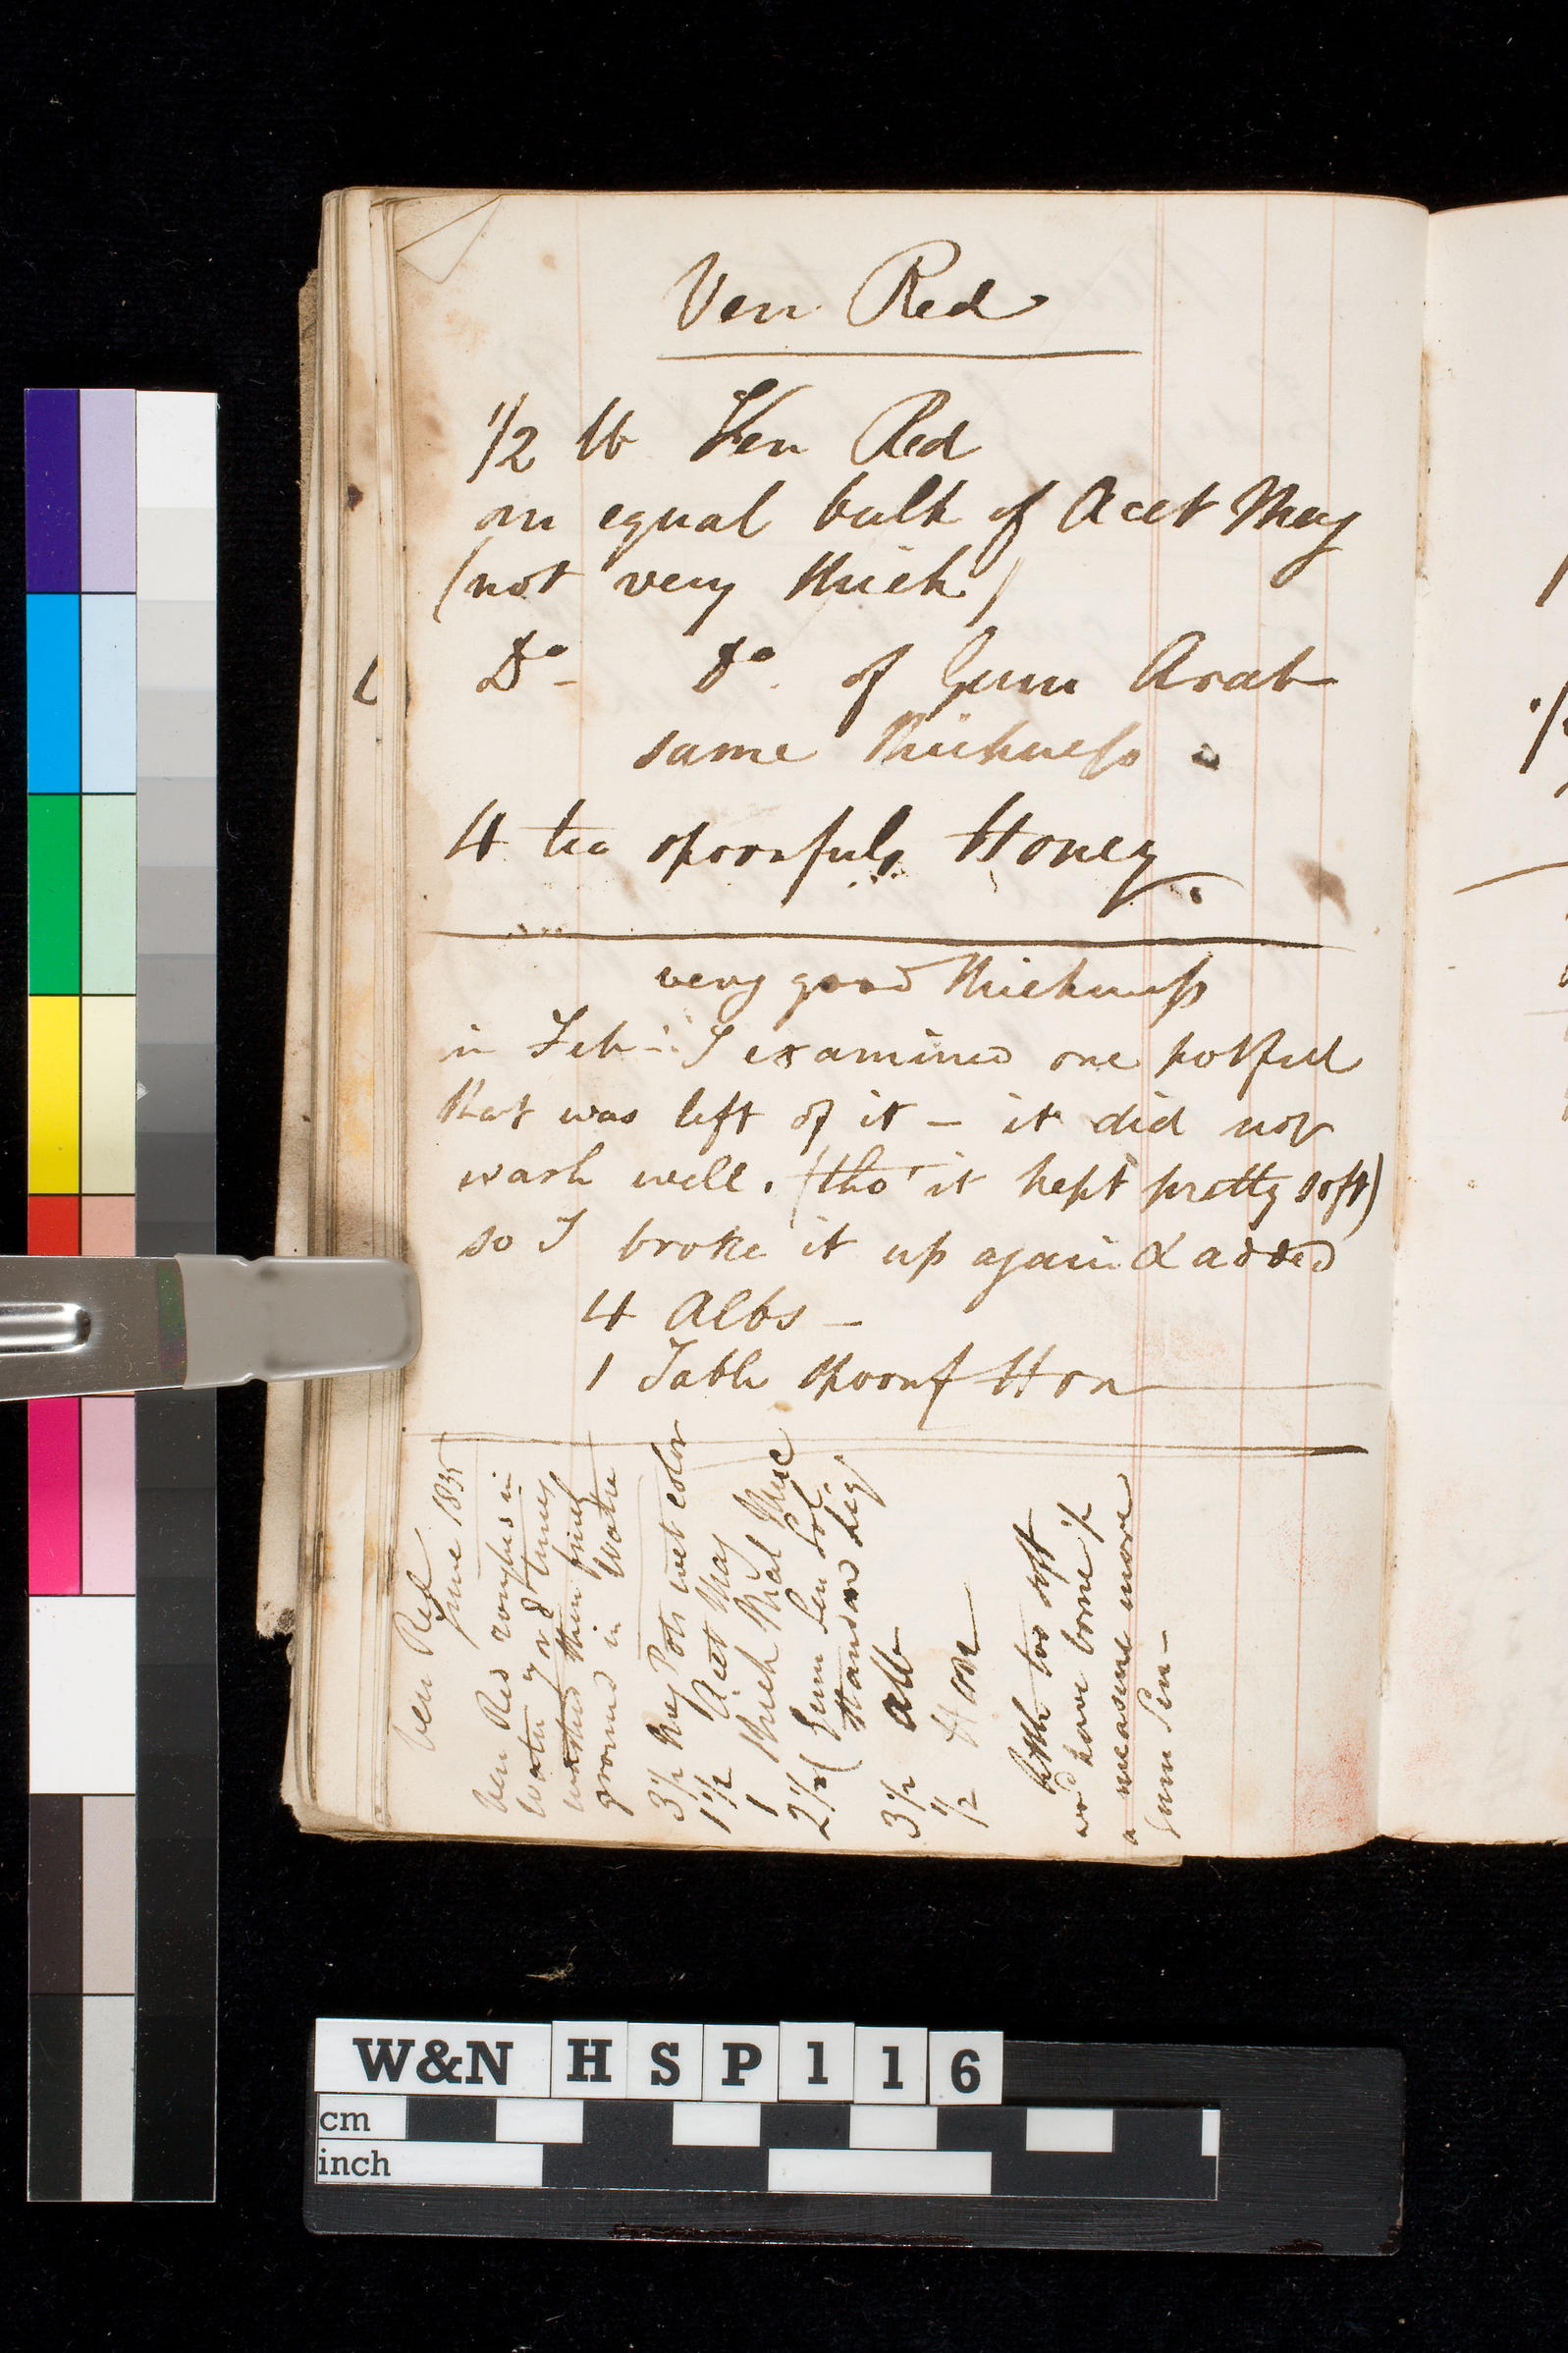 Ven Red
1/2 lb Ven Red
an equal bulk of Acet Mag
(not very thick)
Do - Do. of Gum Arab
same thickness
4 tea spoonfuls Honey.
very good thickness
in Feb - I examined one potfull
that was left of it - it did not
wash well. (tho' it kept pretty soft)
so I broke it up again & added
4 Albs -
1 Table spoonf Hon
Ven Red
June 1835
Ven Red roughed in
Water 7 or 8 times
washed then finely
ground in Water
3 1/2 Pots wet color
1 1/2 Acet Mag
1 thick Muc
2 1/2 ( Gum Sen Sol.
3 1/2 alb
1/2 Hon
little too soft
wd have borne 1/2
a measure more
Gum Sen -
W&N HSP116
cm
inch